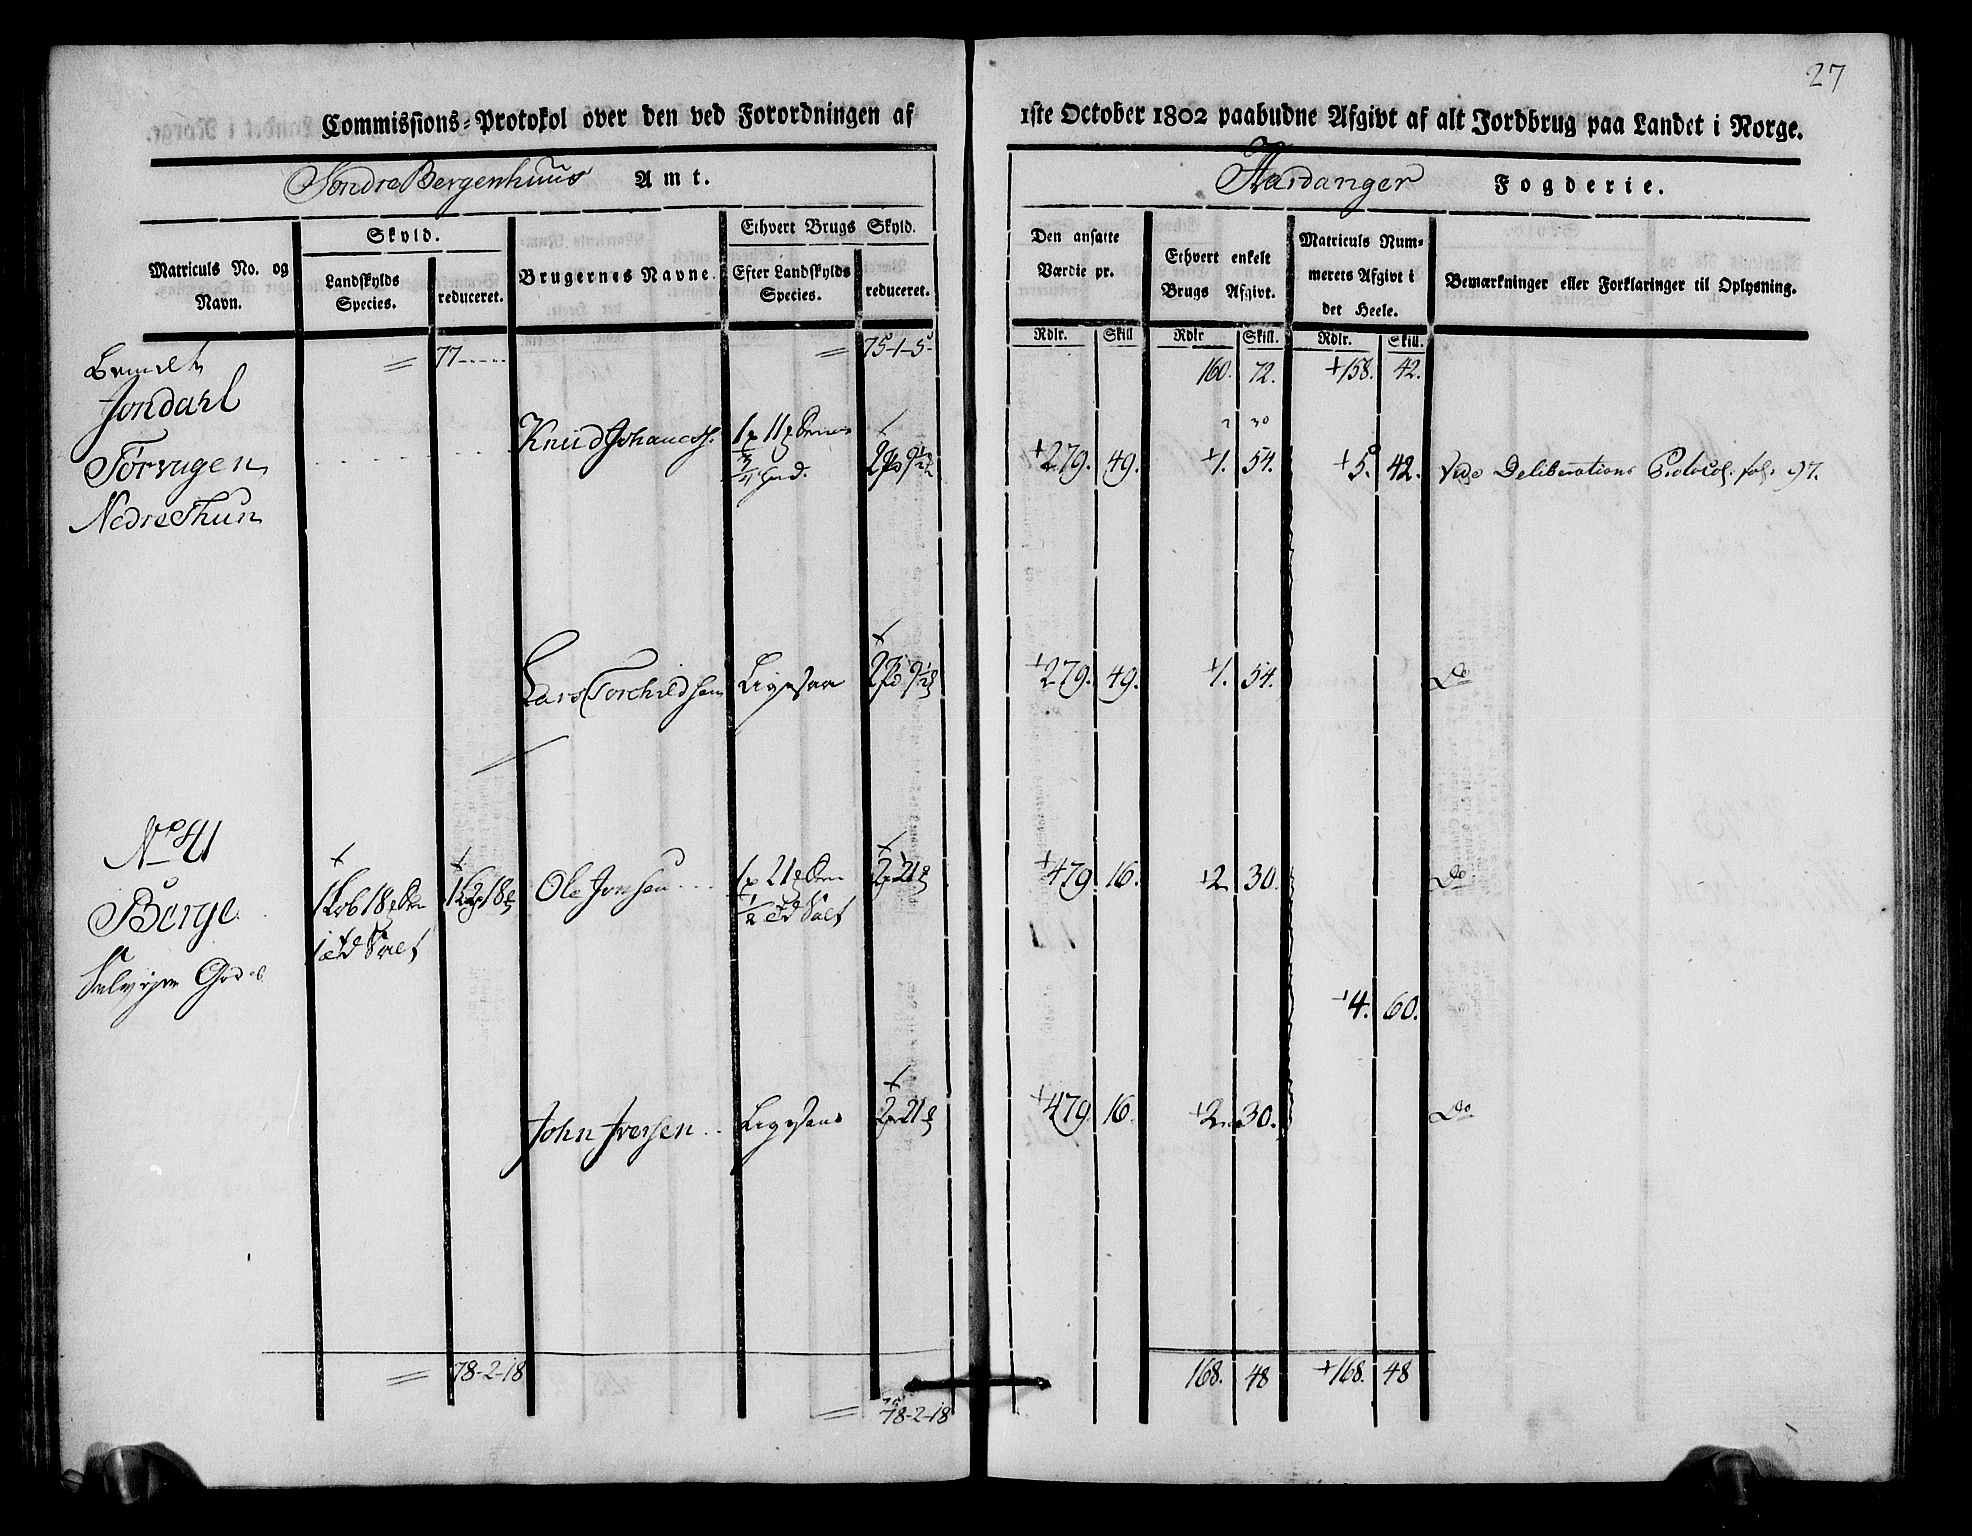 27
Commissions-Protokol over den ved Forordningen af 1ste October 1802 paabudne Afgivt af alt Jordbrug paa Landet i Norge.
Søndre Bergenhuus Amt. Hardanger Fogderie.
Matriculs No. og Navn.
Skyld.
Landskylds Species.
reduceret.
Brugernes Navne.
Ethvert Brugs Skyld.
Efter Landskylds Species.
reduceret.
Den ansatte Værdie pr.
Rdlr. Skill
Ethvert enkelt Brugs Afgivt.
Rdlr Skill.
Matriculs Nummerets Afgivt i det Heele.
Rdlr. Skill.
Bemærkninger eller Forklaringer til Oplysning.
77 75-1-5 160. 72. +158. 42.
Jondahl
Torvugen
Nedre Thun
Knud Johanes. +279. 49. +1. 54. +5. 42. Vide Deliberations Protocol. fol. 97.
Lars Torchildsen Ligesaa +279. 49. +1. 54. Do
No 41
Berge
Ole Jonsen +479. 16. +2. 30. Do
+4. 60.
John Iversen Ligesaa +479. 16. +2. 30. Do
78-2-18 78-2-18 168. 48 +168. 48